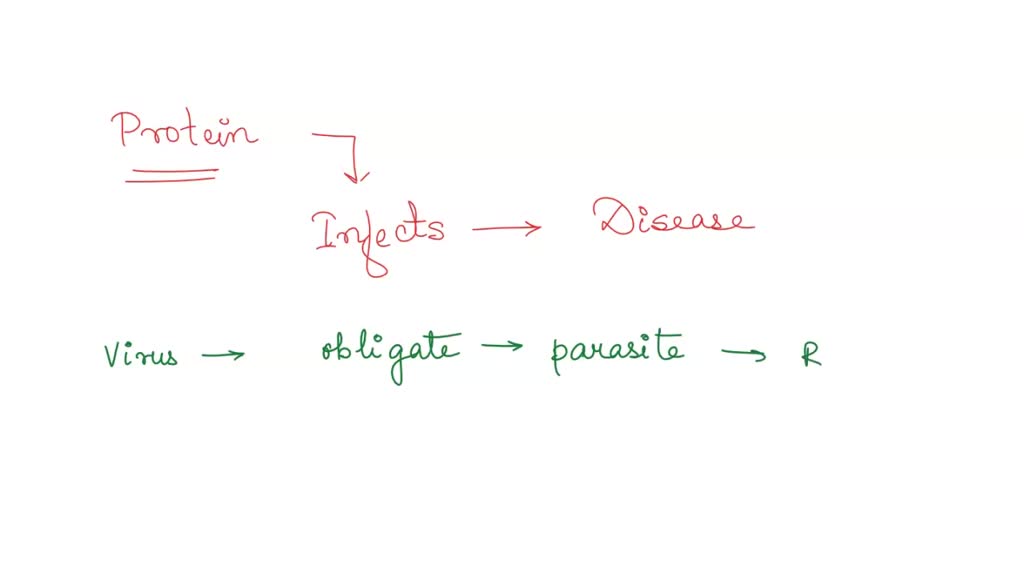 Protein
Infects → Disease
Virus → obligate → parasite → R